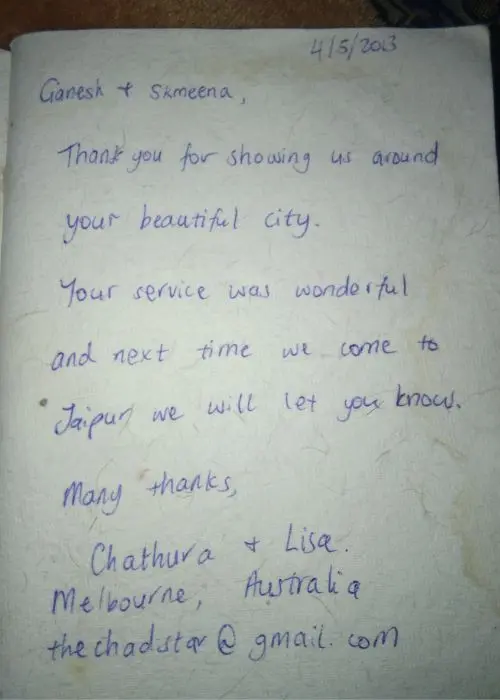 4/5/2013
Ganesh + Skmeena,
Thank you for showing us around
your beautiful city.
Your service was wonderful
and next time we come to
Jaipur we will let you know.
Many thanks,
Chathura + Lisa.
Melbourne, Australia
thechadstar@gmail.com